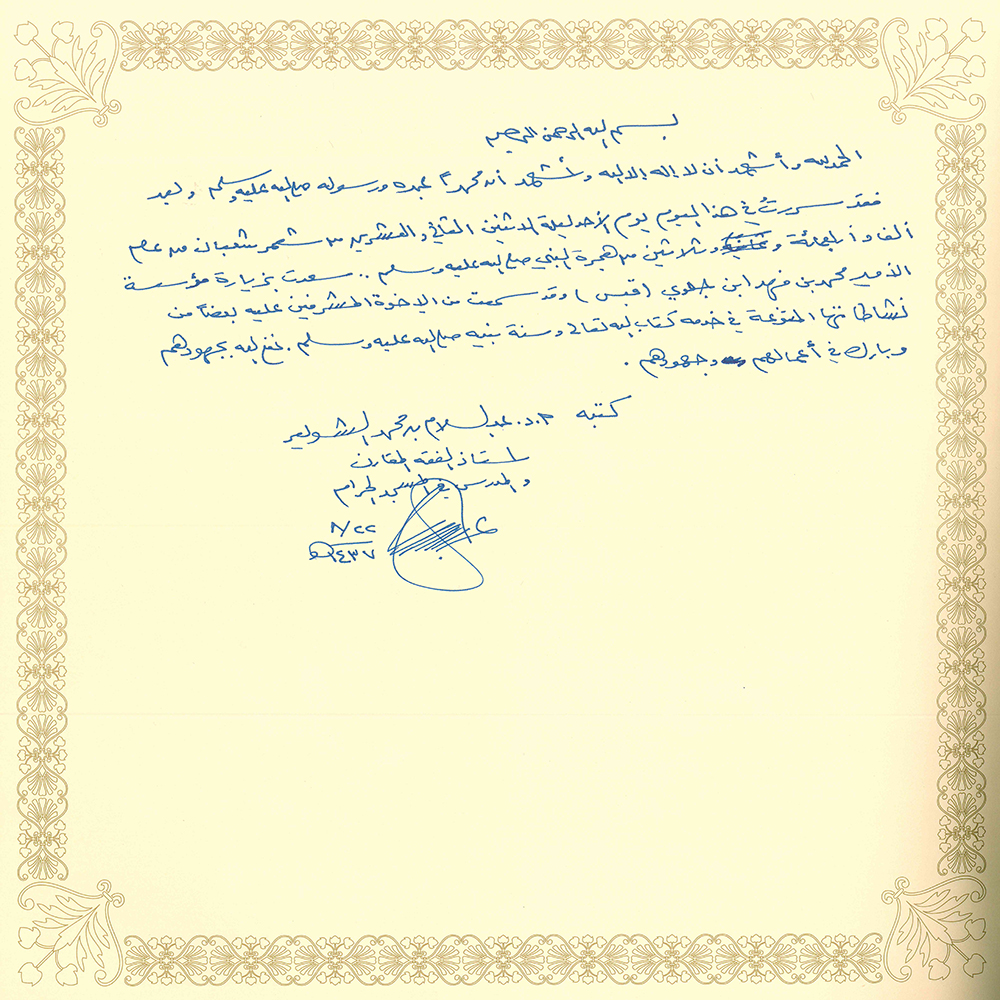 بسم الله الرحمن الرحيم
الحمد لله وأشهد أن لا إله إلا الله وأشهد أن محمداً عبده ورسوله صلى الله عليه وسلم وبعد
فقد سررتُ في هذا اليوم يوم الأحد ليلة الاثنين الثاني والعشرين من شهر شعبان من عام
ألف وأربعمائة و وثلاثين من هجرة النبي صلى الله عليه وسلم .. سعدت بزيارة مؤسسة
الأمير محمد بن فهد ابن جلوي (قبس) وقد سمعت من الإخوة المشرفين عليه بعضاً من
نشاطاتها المتنوعة في خدمة كتاب الله تعالى وسنة نبيه صلى الله عليه وسلم . نفع الله بجهودهم
وبارك في أعمالهم وجهودهم .
كتبه أ.د. عبد السلام بن محمد الشويعر
أستاذ الفقه المقارن
والمدرس في المسجد الحرام
٨/٢٢
١٤٣٧هـ